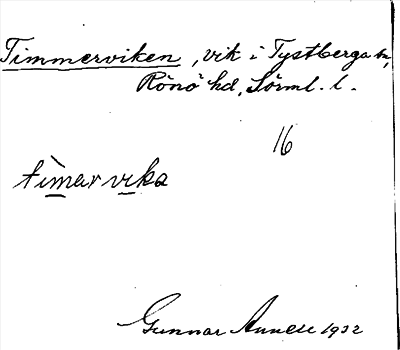 Timmerviken, vik i Tystberga sn,
Rönö hd, Sörml. l.
16
tìmarvika
Gunnar 1932